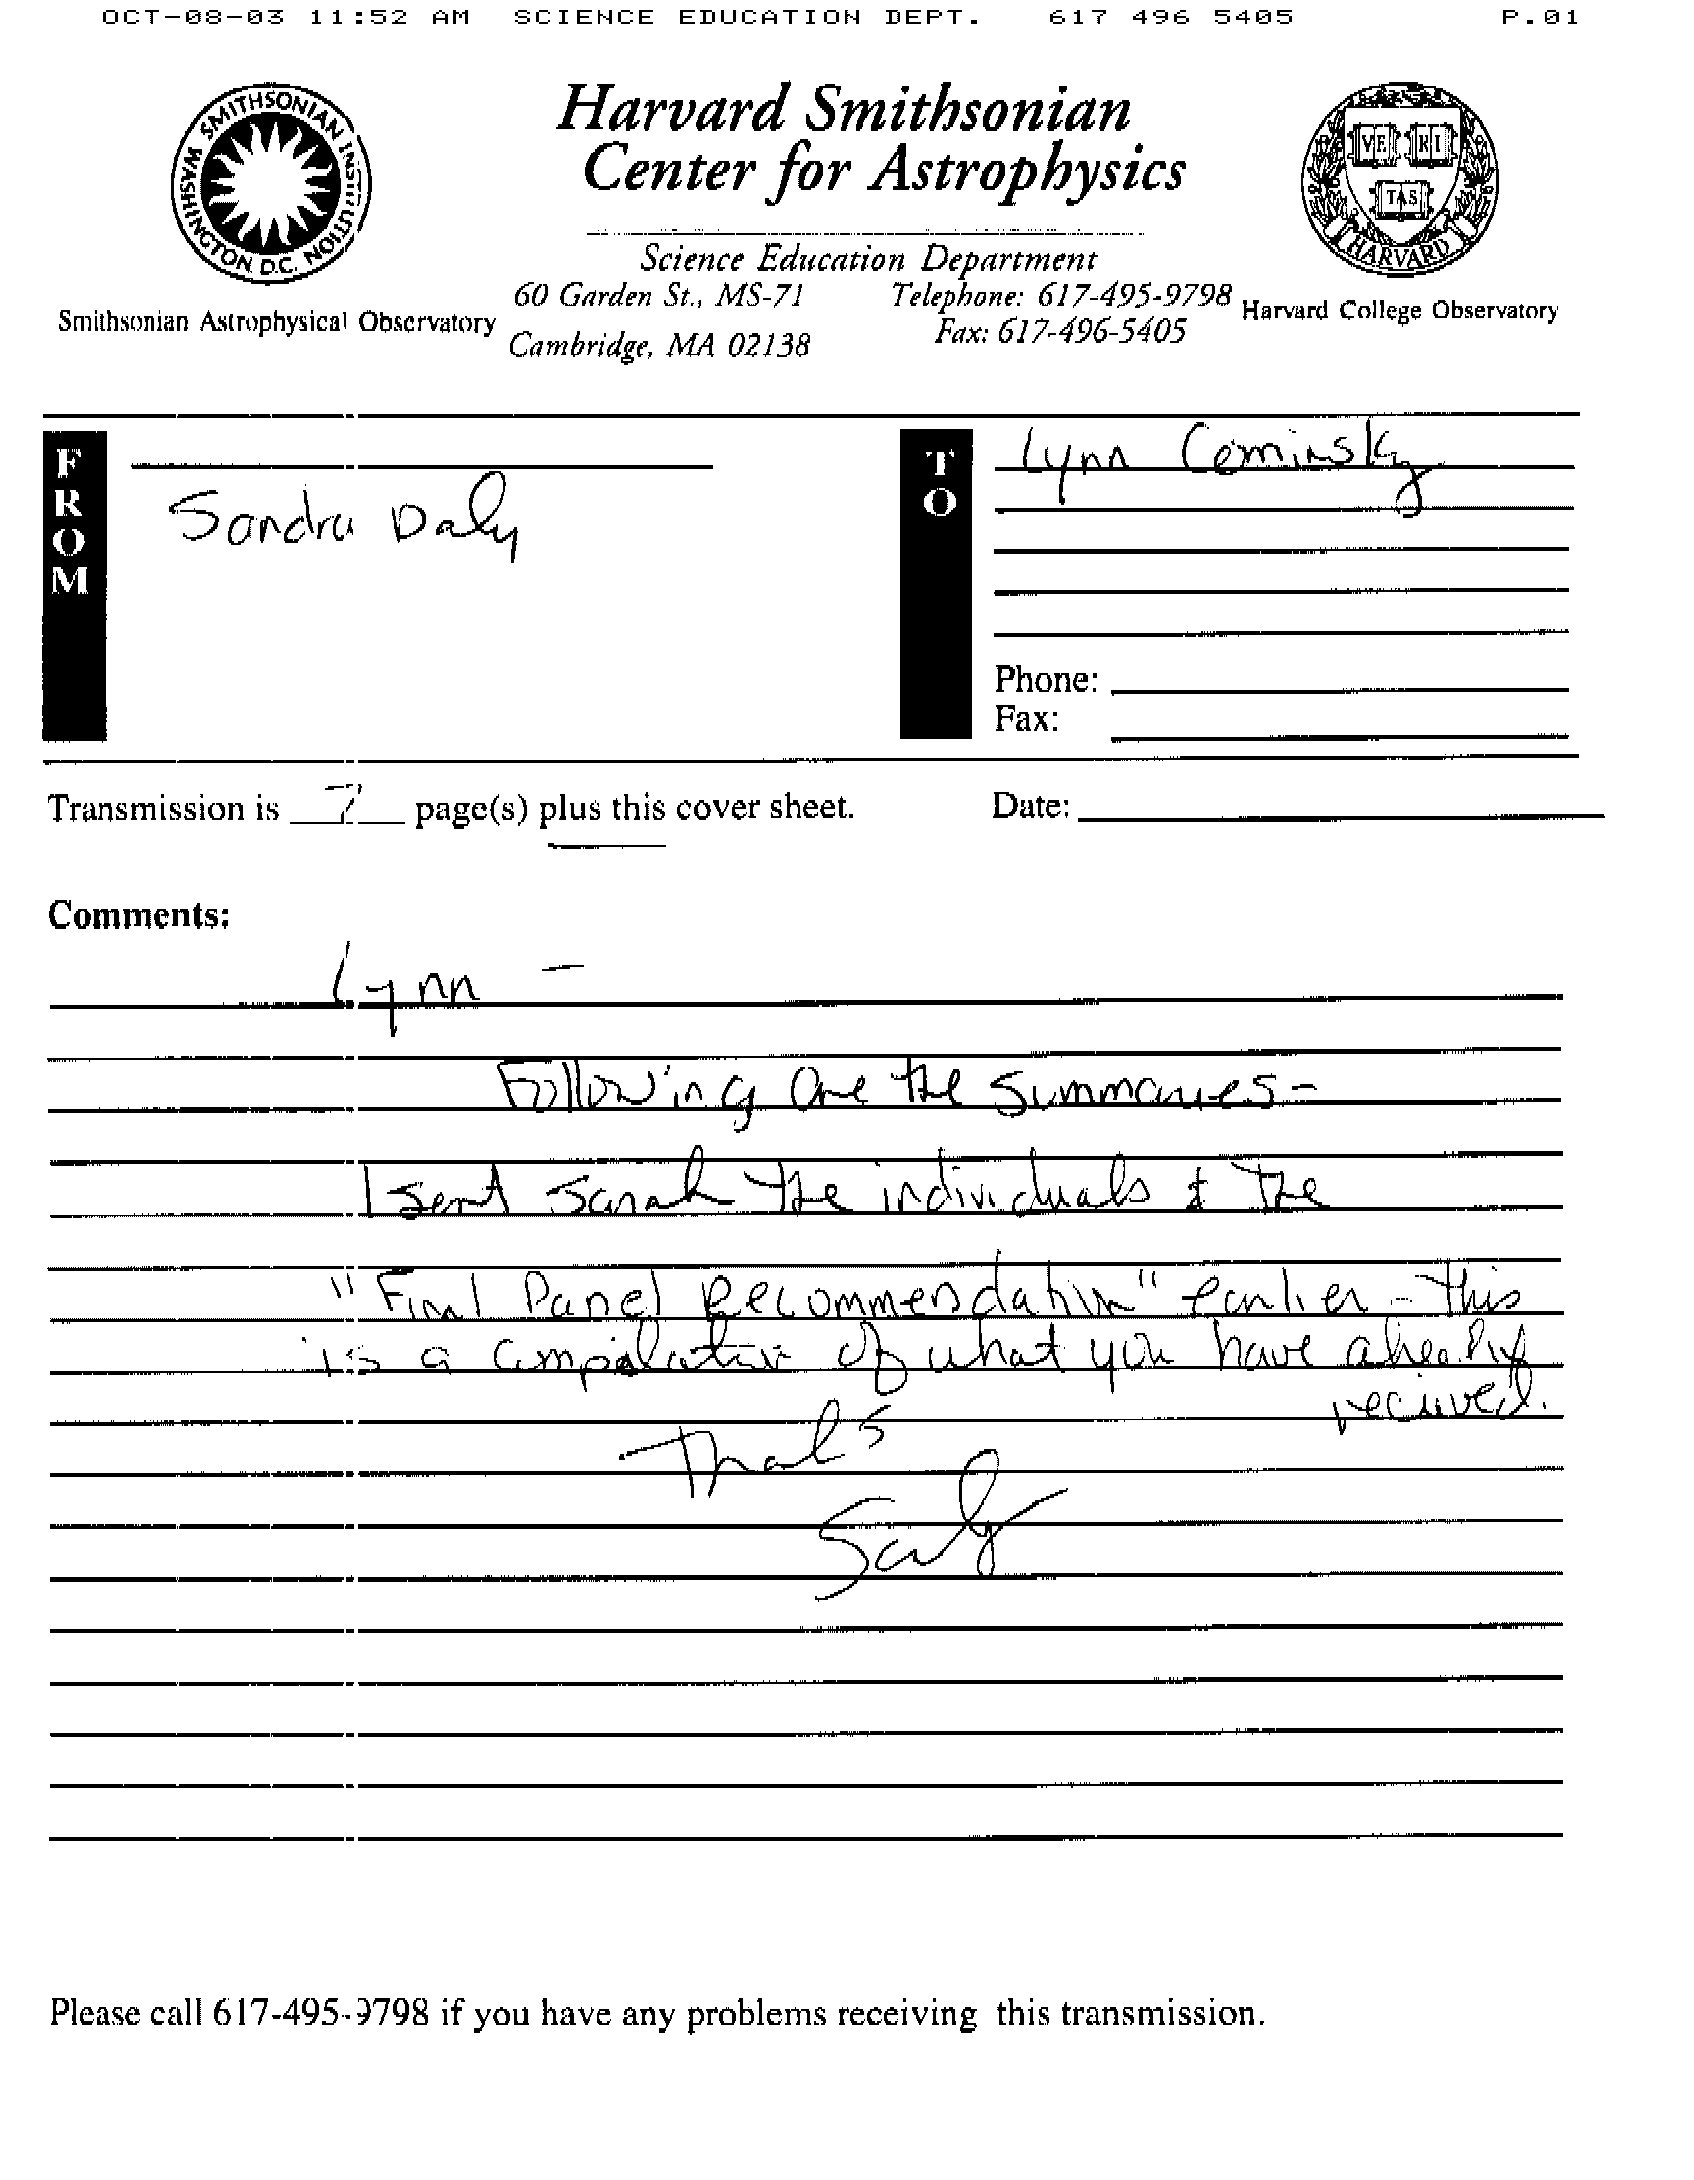 OCT-08-03 11:52 AM SCIENCE EDUCATION DEPT. 617 496 5405 P.01
SMITHSONIAN INSTITUTION
WASHINGTON D.C.
Harvard Smithsonian
Center for Astrophysics
VE RI
TAS
HARVARD
Science Education Department
60 Garden St., MS-71 Telephone: 617-495-9798
Cambridge, MA 02138 Fax: 617-496-5405
Smithsonian Astrophysical Observatory
Harvard College Observatory
FROM
Sandra Daly
TO
Lynn Cominsky
Phone:
Fax:
Transmission is 7 page(s) plus this cover sheet. Date:
Comments:
Lynn -
Following are the summaries -
I sent Sarah the individuals & the
"Final Panel Recommendation" earlier - this
is a compilation of what you have already
received.
Thanks
Sandy
Please call 617-495-9798 if you have any problems receiving this transmission.